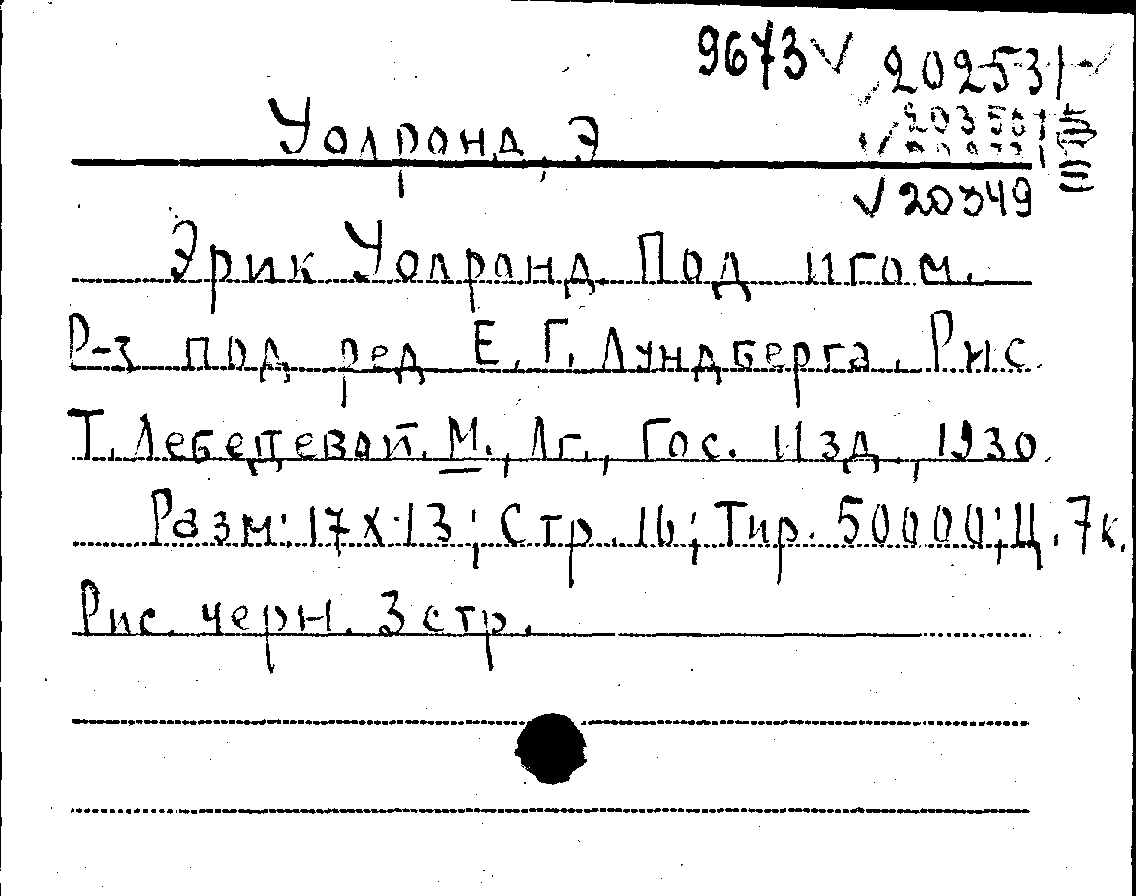 9673 20253
Уолронд, Э
20349
Эрик Уолронд. Под игом.
Р-з под ред Е. Г. Лундберга. Рис
Т. Лебедевой. М., Лг., Гос. Изд., 1930.
Разм: 17х13; Стр. 16; Тир. 50000; Ц. 7к.
Рис. черн. 3 стр.